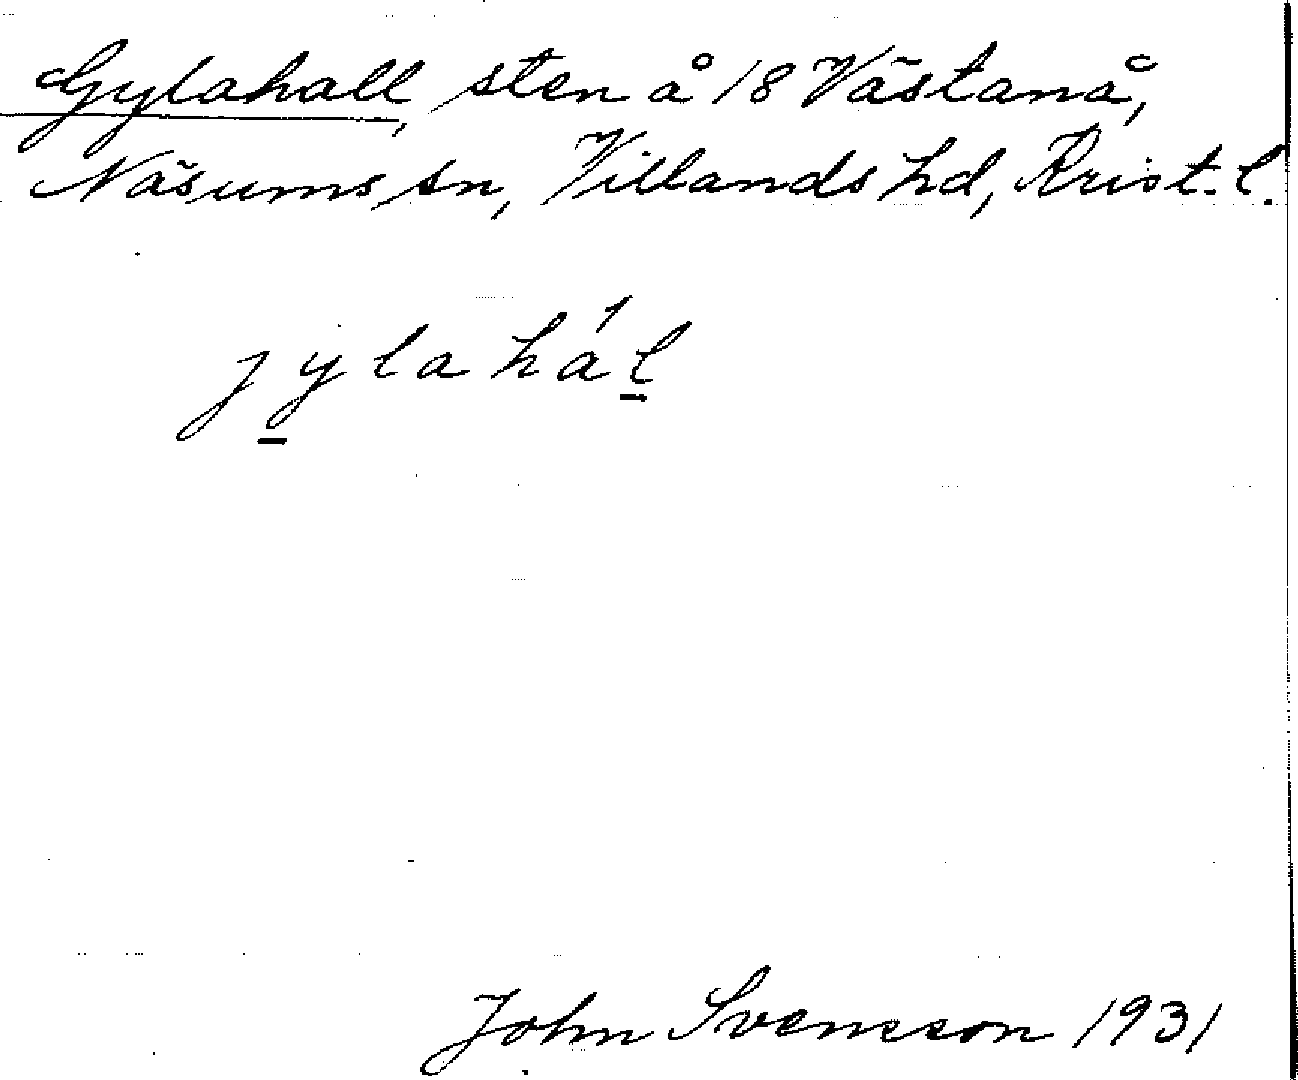 Gylahall, sten å 18 Västanå,
Näsums sn, Villands hd, Krist. l.
jylahál
John Svensson 1931